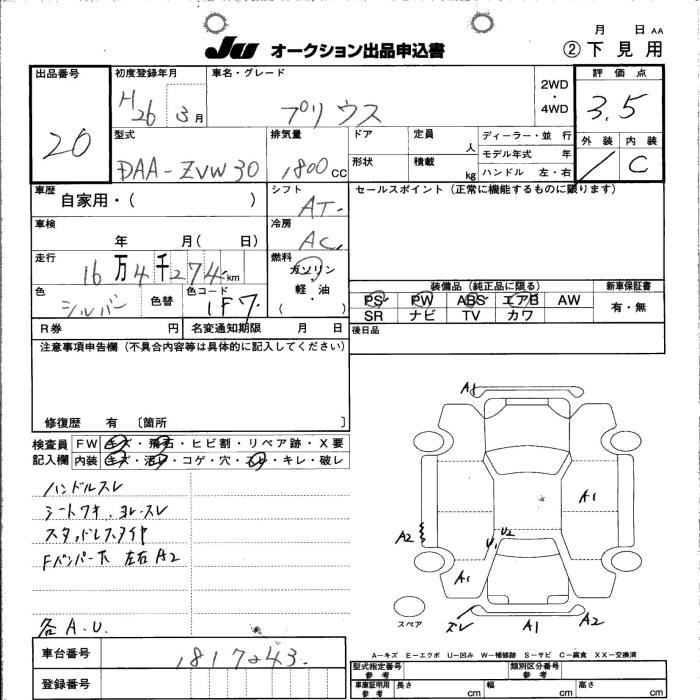 JU オークション出品申込書
月 日 AA
② 下見用
出品番号
20
初度登録年月
H26 3月
車名・グレード
プリウス
2WD
・
4WD
評価点
3.5
外装 内装
/ C
型式
DAA-ZVW30
排気量
1800 CC
ドア
定員
人
形状
積載
kg
ディーラー・並行
モデル年式 年
ハンドル 左・右
車歴
自家用・( )
シフト
AT
セールスポイント(正常に機能するものに限ります)
車検
年 月( 日)
冷房
AC
走行
16万4千274km
燃料
ガソリン
・
軽・油
・
( )
色
シルバー
色替
色コード
1F7
装備品(純正品に限る)
PS PW ABS エアB AW
SR ナビ TV カワ
新車保証書
有・無
R券 円
名変通知期限 月 日
後日品
注意事項申告欄(不具合内容等は具体的に記入してください)
修復歴 有 〔箇所 〕
検査員
記入欄
FW キズ・飛石・ヒビ割・リペア跡・X要
内装 キズ・汚レ・コゲ・穴・スレ・キレ・破レ
ハンドルスレ
シートワキ、ヨレ・スレ
スタッドレスタイヤ
Fバンパー下 左右A2
各A.U.
A1
A1
A2
U1
U2
A1
スペア
ズレ
A1
A2
A-キズ E-エクボ U-凹み W-補修跡 S-サビ C-腐食 XX-交換済
車台番号
1817243
登録番号
型式指定番号
参考
類別区分番号
参考
車庫証明用
参考
長さ cm
幅 cm
高さ cm